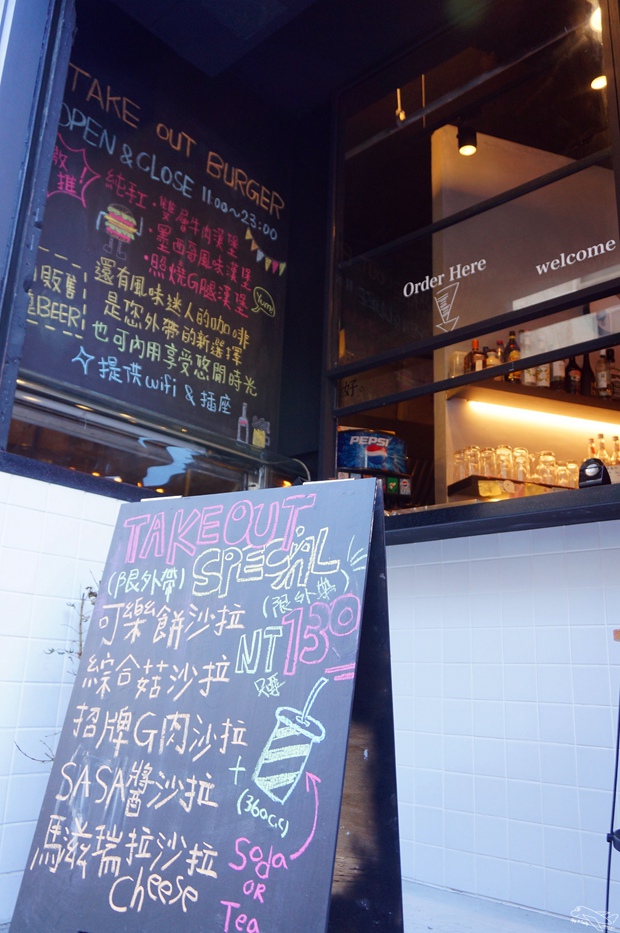 TAKE OUT BURGER
OPEN & CLOSE 11:00~23:00
推!
純手工·雙層牛肉漢堡
·墨西哥風味漢堡
·照燒G腿漢堡
還有風味迷人的咖啡
Yum!
是您外帶的新選擇
販售
BEER!
也可內用享受悠閒時光
提供wifi & 插座
Order Here
welcome
PEPSI
TAKEOUT
SPECIAL
(限外帶)
(限外帶)
可樂餅沙拉
NT 130
綜合菇沙拉
只要
招牌G肉沙拉
+
(360c.c)
SASA醬沙拉
馬滋瑞拉沙拉
Cheese
Soda
OR
Tea